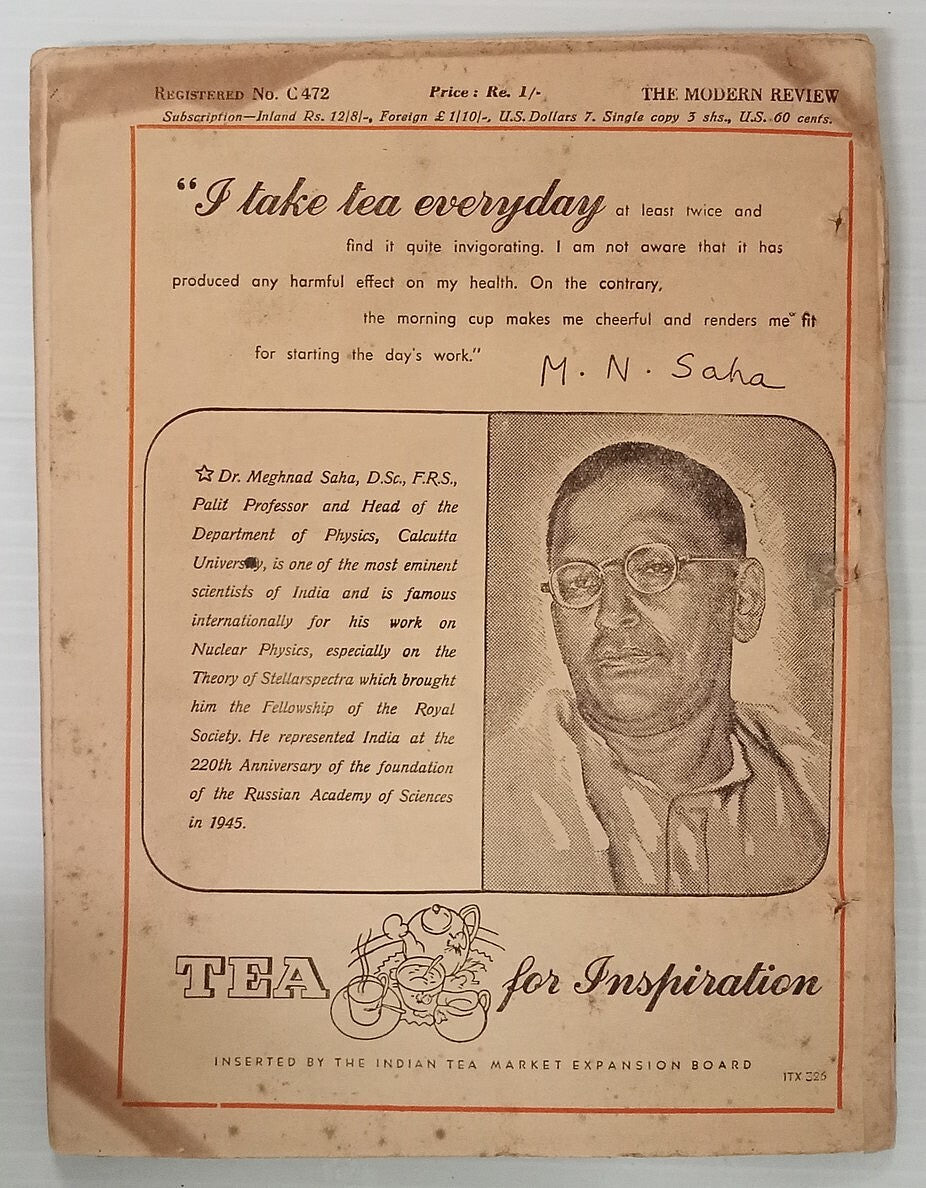 REGISTERED No. C 472 Price : Re. 1/- THE MODERN REVIEW
Subscription—Inland Rs. 12/8/-, Foreign £ 1/10/-, U.S. Dollars 7. Single copy 3 shs., U.S. 60 cents.
“I take tea everyday at least twice and
find it quite invigorating. I am not aware that it has
produced any harmful effect on my health. On the contrary,
the morning cup makes me cheerful and renders me fit
for starting the day's work.”
M. N. Saha
☆ Dr. Meghnad Saha, D.Sc., F.R.S.,
Palit Professor and Head of the
Department of Physics, Calcutta
University, is one of the most eminent
scientists of India and is famous
internationally for his work on
Nuclear Physics, especially on the
Theory of Stellarspectra which brought
him the Fellowship of the Royal
Society. He represented India at the
220th Anniversary of the foundation
of the Russian Academy of Sciences
in 1945.
TEA for Inspiration
INSERTED BY THE INDIAN TEA MARKET EXPANSION BOARD
ITX 326